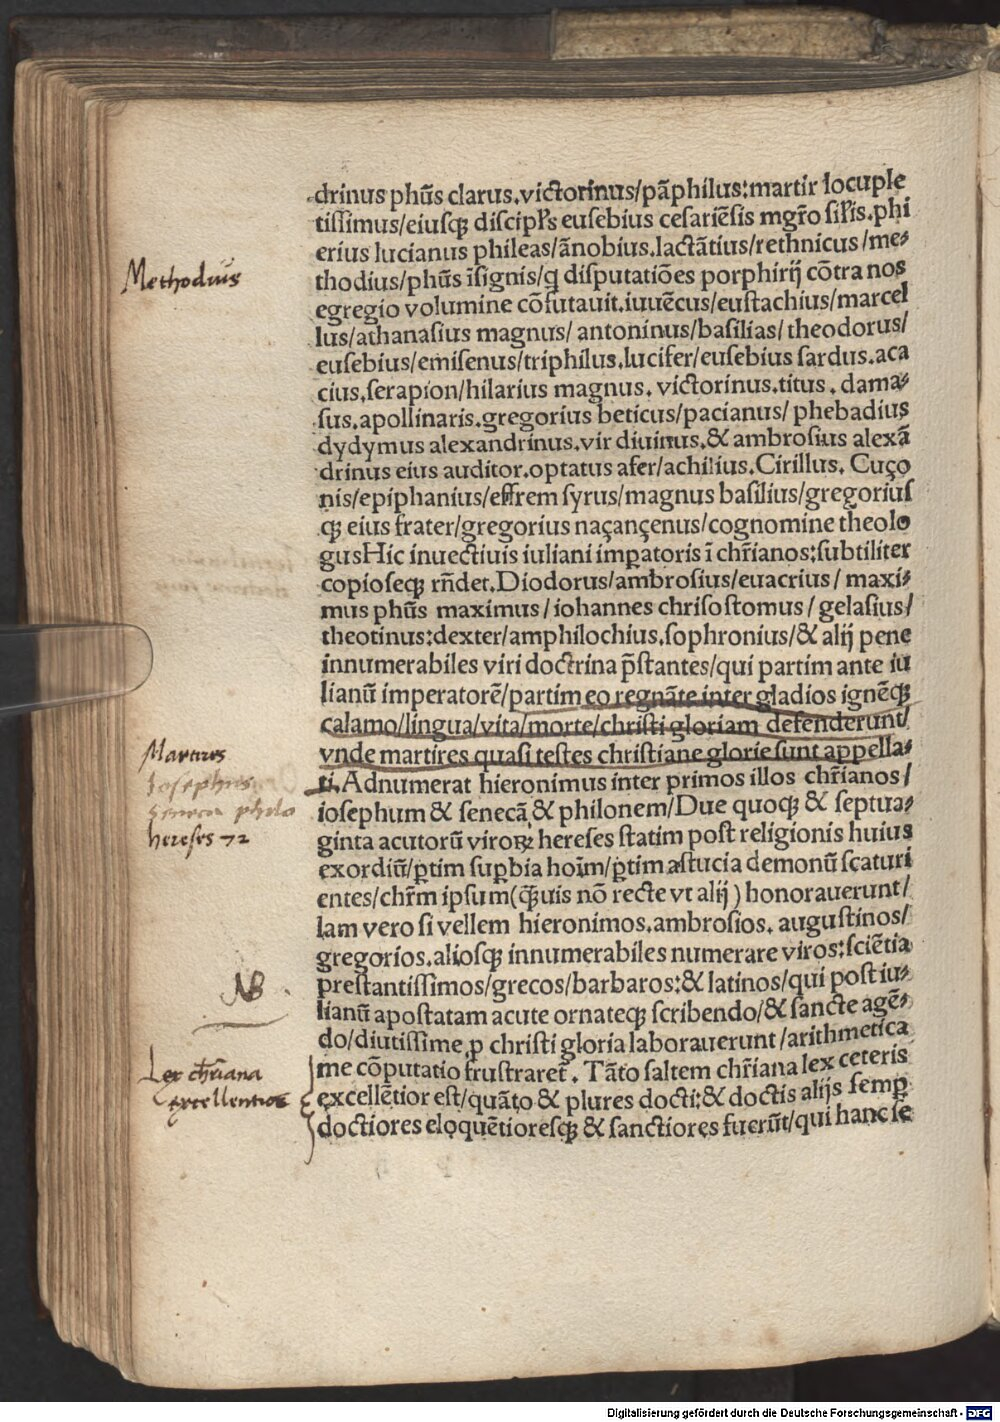 drinus phūs clarus.victorinus/pāphilus:martir locuple
tissimus/eiusqꝫ discipl̄s eusebius cesariēsis mgr̄o sil̄is.phi
erius lucianus phileas/ānobius.lactātius/rethnicus/me⸗
Methodius
thodius/phūs īsignis/q disputatiōes porphirij cōtra nos
egregio volumine cōfutauit.iuuēcus/eustachius/marcel
lus/athanasius magnus/ antoninus/basilias/theodorus/
eusebius/emisenus/triphilus.lucifer/eusebius sardus.aca
cius.serapion/hilarius magnus. victorinus.titus. dama⸗
sus.apollinaris.gregorius beticus/pacianus/ phebadius
dydymus alexandrinus.vir diuinus.& ambrosius alexā
drinus eius auditor.optatus afer/achilius.Cirillus. Cuço
nis/epiphanius/effrem syrus/magnus basilius/gregorius
qꝫ eius frater/gregorius naçançenus/cognomine theolo
gusHic inuectiuis iuliani imꝑatoris ī chr̄ianos:subtiliter
copioseqꝫ rn̄det.Diodorus/ambrosius/euacrius/ maxi⸗
mus phūs maximus/iohannes chrisostomus/gelasius/
theotinus:dexter/amphilochius.sophronius/& alij pene
innumerabiles viri doctrina p̄stantes/qui partim ante iu
lianū imperatorē/partim eo regnāte inter gladios ignēqꝫ
calamo/lingua/vita/morte/christi gloriam defenderunt/
Martires
vnde martires quasi testes christiane glorie sunt appella⸗
Iosephus
ti.Adnumerat hieronimus inter primos illos chr̄ianos/
Seneca philo
iosephum & senecā & philonem/Due quoqꝫ & septua⸗
hereses 72
ginta acutorū viroꝝ hereses statim post religionis huius
exordiū/ꝑtim suꝑbia hoīm/ꝑtim astucia demonū scaturi
entes/chr̄m ipsum(q̄uis nō recte vt alij)honorauerunt/
Iam vero si vellem hieronimos.ambrosios. augustinos/
gregorios.aliosqꝫ innumerabiles numerare viros:sciētia
NB
prestantissimos/grecos/barbaros:& latinos/qui post iu⸗
lianū apostatam acute ornateqꝫ scribendo/& sancte agē⸗
do/diutissime ꝓ christi gloria laborauerunt/arithmetica
Lex chr̄iana
me cōputatio frustraret̄. Tāto saltem chr̄iana lex ceteris
excellentior
excellētior est/quāto & plures docti:& doctis alijs semꝑ
doctiores eloquētioresqꝫ & sanctiores fuerūt/qui hanc se
Digitalisierung gefördert durch die Deutsche Forschungsgemeinschaft - DFG